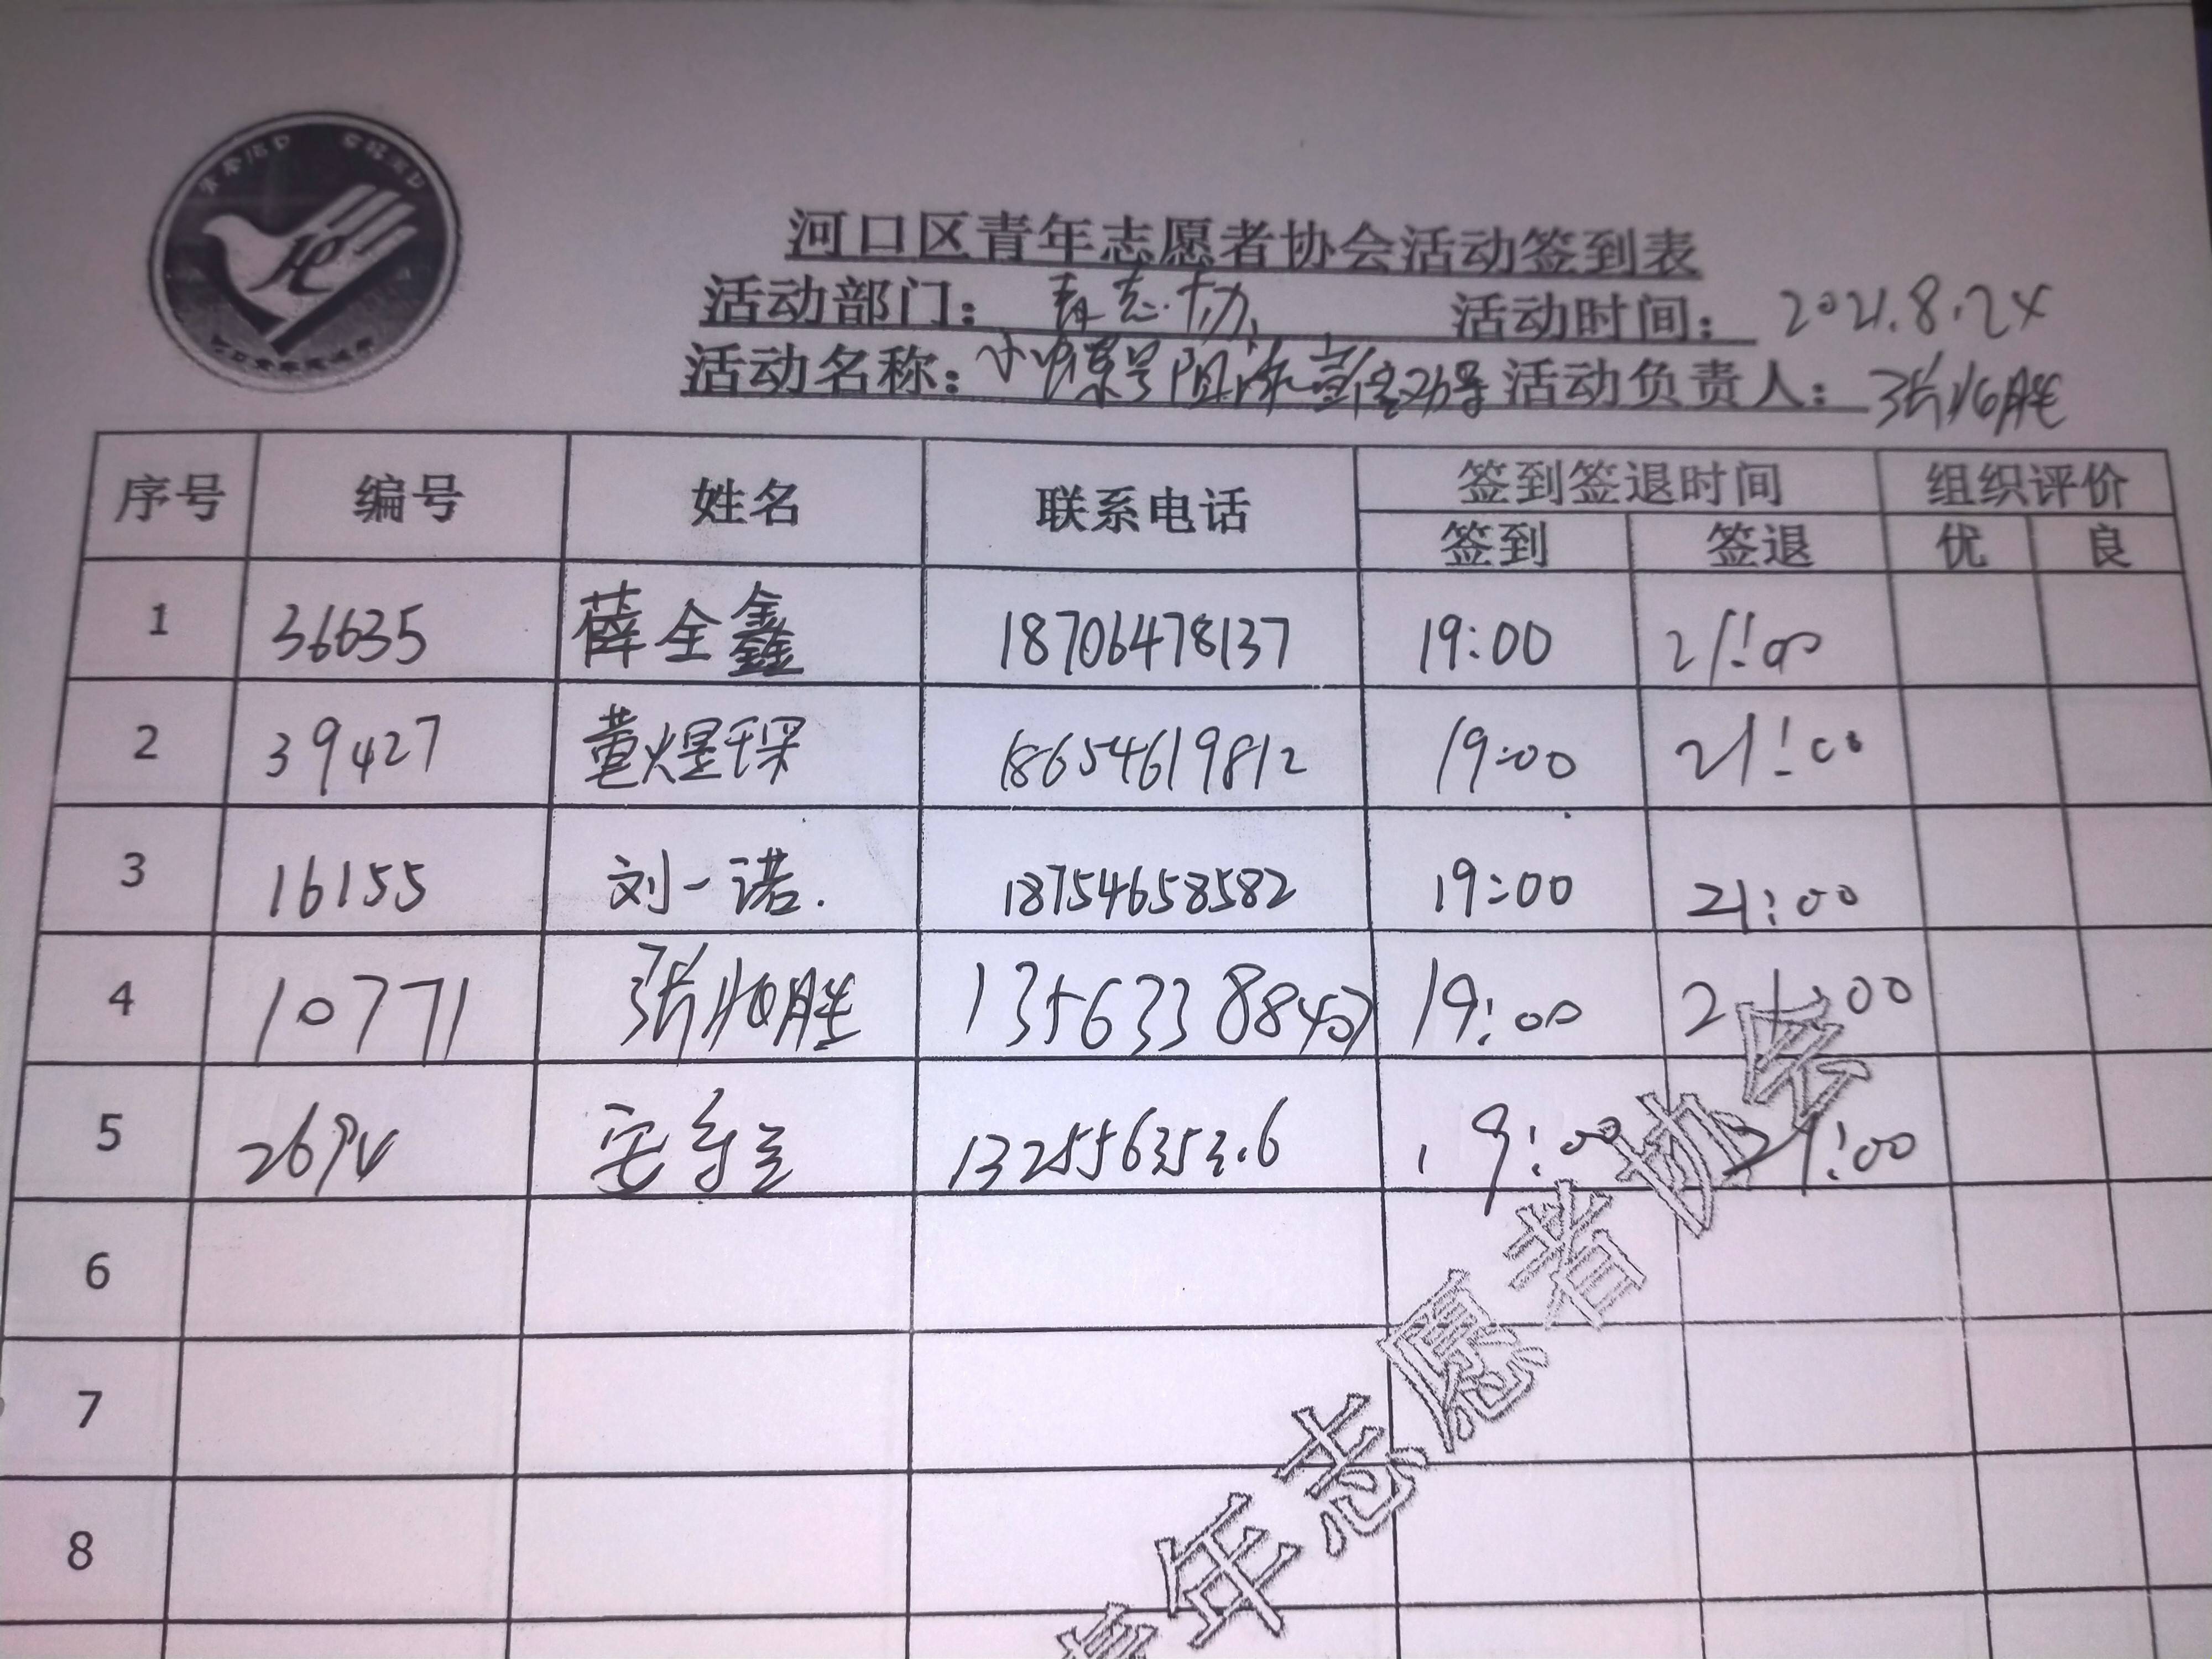 河口区青年志愿者协会活动签到表
活动部门： 青志协 活动时间： 2021.8.24
活动名称： 活动负责人：
序号 编号 姓名 联系电话 签到签退时间 组织评价
签到 签退 优 良
1 36635 薛全鑫 18706478137 19:00 21:00
2 39427 董煜琛 18654619812 19:00 21:00
3 16155 刘一诺. 18754658582 19:00 21:00
4 10771 19:00 21:00
5 19:00 21:00
6
7
8
青年志愿者协会